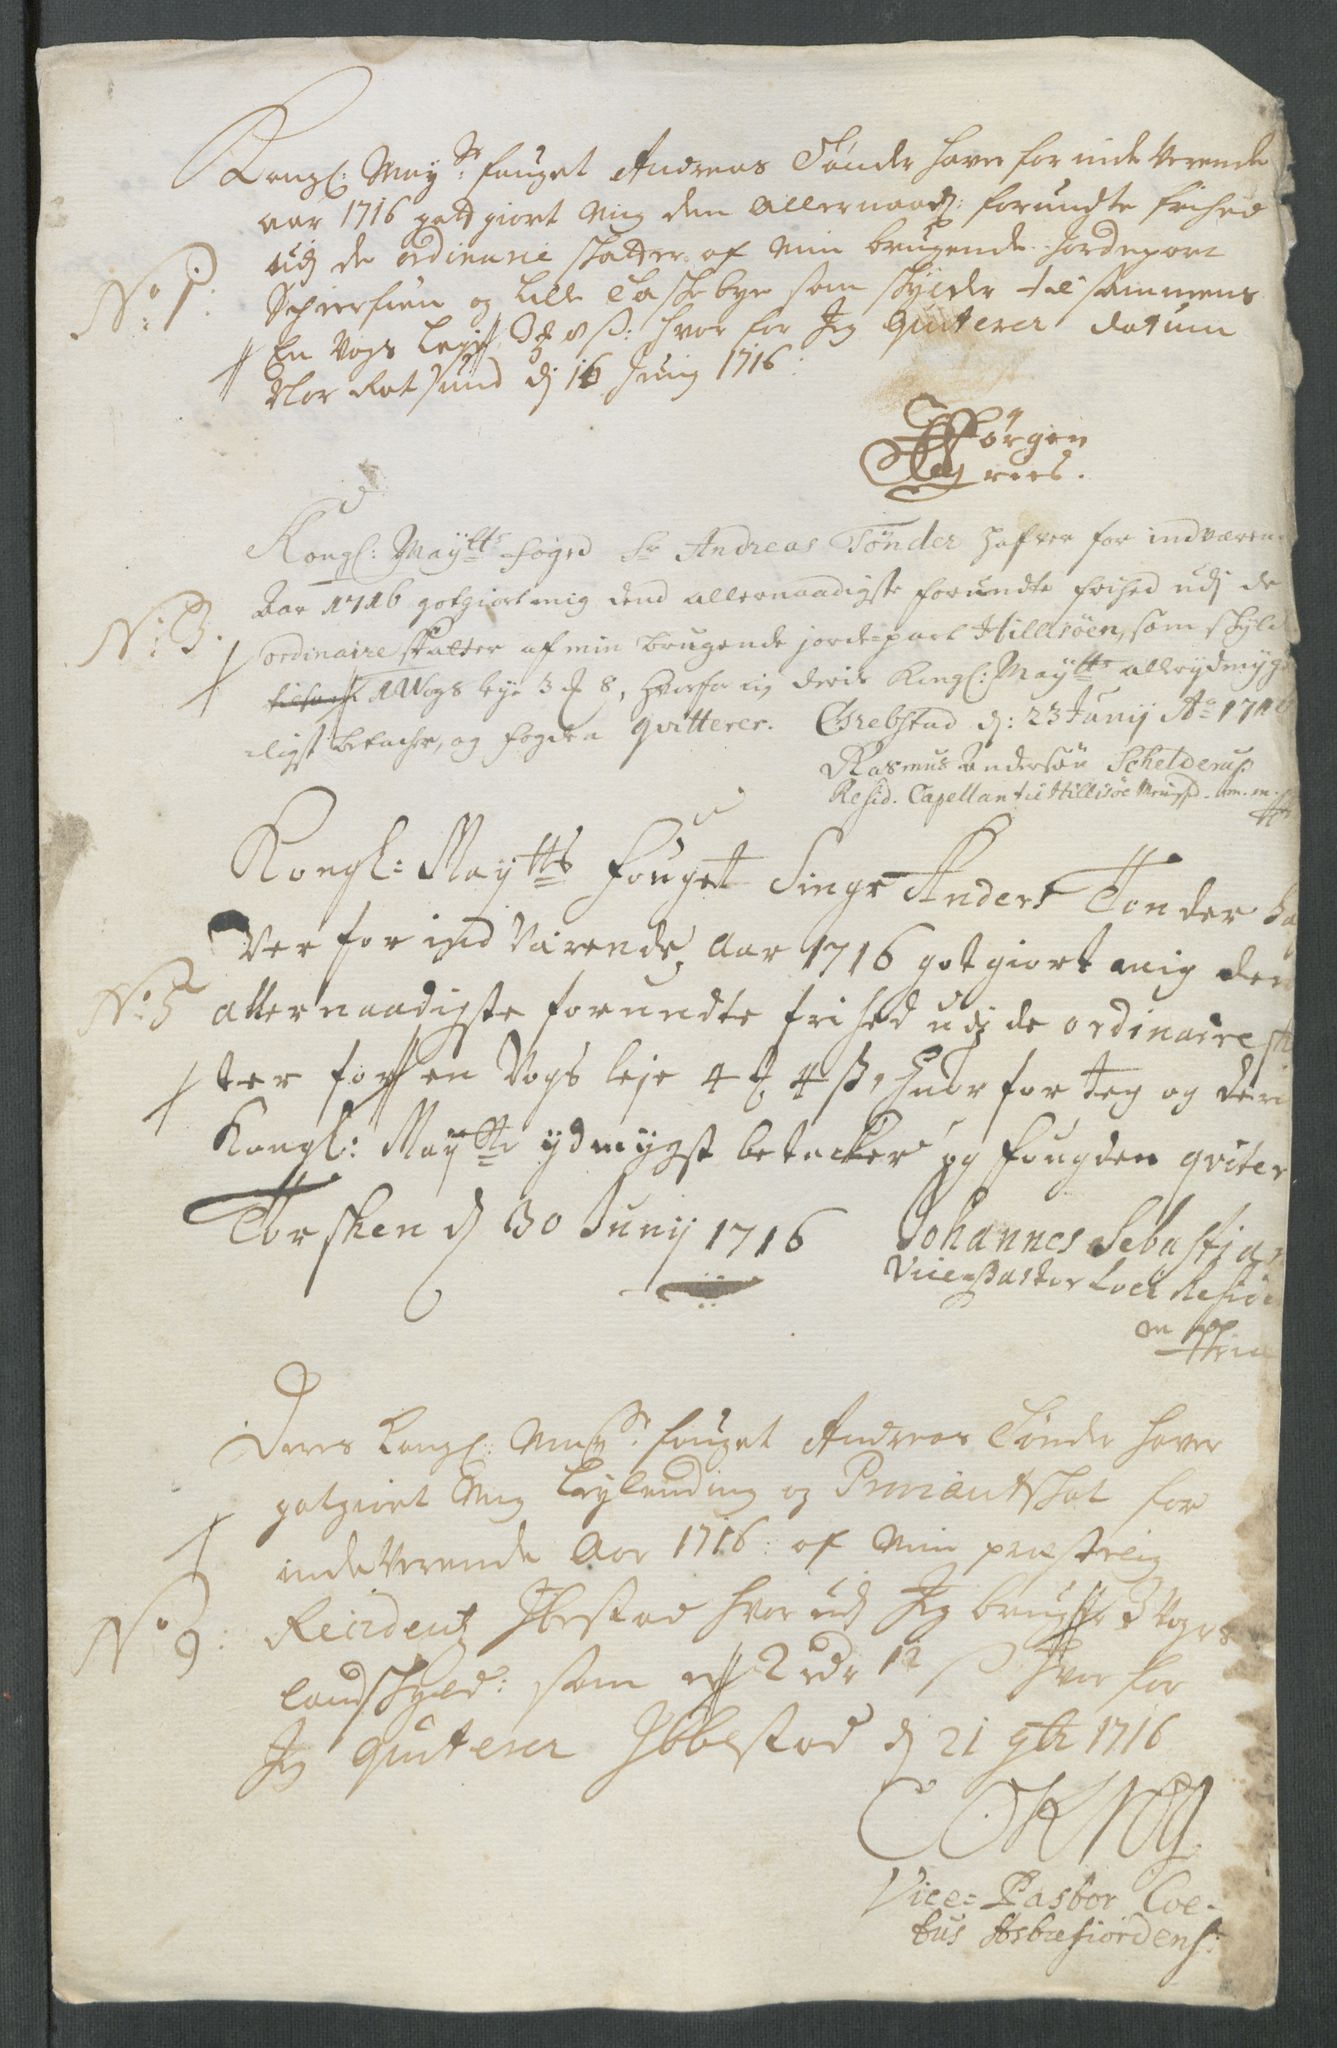 Kongl: May.tt fouget Andreas Tönder haver for inde Verende
aar 1716 gott giort Mig den Allernaad: forundte frihed
udj de ordinarie skatter af Min brugende Jordepart
og Lille som skylder til sammens
N.o 1:
En Vogs Leye 3 ß: hvor for Jeg Quiterer datum
Nor Rotsund dj 16 Junij 1716:
Jörgen
Kongl: Maÿtts foged Sr Andreas Tönder hafver for indværen
Aar 1716 gotgiort mig dend allernaadigste forundte frihed udj de
N: 3.
ordinaire skatter af min brugende jorde-part Hillisöen, som skyld
1 Wogs leÿe 3 8, hvorfor ieg deris Kongl: Maÿtts allerÿdmÿg
ligst betacher, og fogden qvitterer. Grebstad d: 23 Junij Ao 1716
Rasmus Andersön Schelderup
Resid. Capellan til Hillisöe m. m.
Kongl: Maÿtts fouget Singr Anders Tonder ha
Ver for ind Værende Aar 1716 gotgiort mig den
N.o 5
allernaadigste forundte frihed udj de ordinaire ska
ter for en Vogs leje 4 4 ß, Huor for Jeg og deris
Kongl: Maÿtt ydmygst betacker og fougden qviter
Torsken d 30 Junij 1716 Johannes Sebastian
Vice-Pastor Loci Resid
m
Deres Kongl: May.tt fouget Andreas Tönder haver
gotgiort Mig Leylending og Proviantskat for
inde Verende Aar 1716: af Min præstelig
N.o 9:
Residentz Ibestad hvor udj Jeg bruger 3 Vogrs
landskyld: som er 2 rdr 12 ß hvor for
Jeg Quiterer Ibbestad dj 21 9br 1716
Vice-Pastor Coe-
tus Astafiordens: